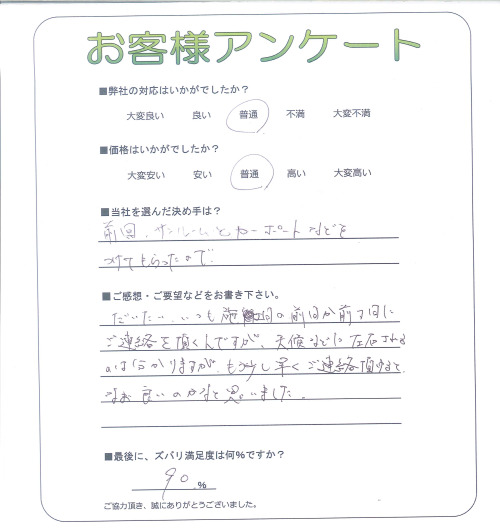 お客様アンケート
■弊社の対応はいかがでしたか?
大変良い 良い 普通 不満 大変不満
■価格はいかがでしたか?
大変安い 安い 普通 高い 大変高い
■当社を選んだ決め手は?
前回、サンルームとカーポートなどを
つけてもらったので
■ご感想・ご要望などをお書き下さい。
だいたい、いつも施工日の前日か前々日に
ご連絡を頂くんですが、天候などに左右される
のは分かりますが、もう少し早くご連絡頂けると、
なお良いのかなと思いました。
■最後に、ズバリ満足度は何%ですか?
90 %
ご協力頂き、誠にありがとうございました。